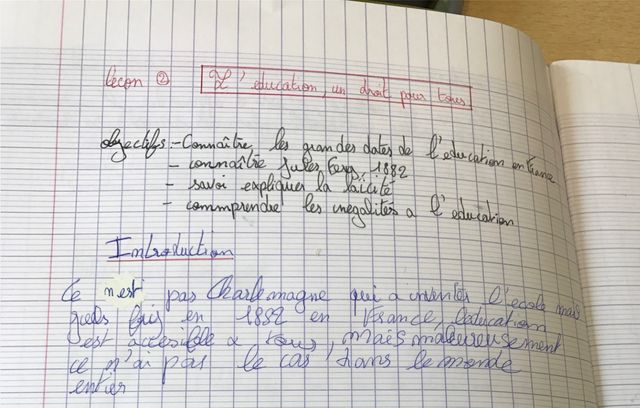 leçon ②
L'éducation, un droit pour tous
objectifs :- Connaître les grandes dates de l'education en france
- connaître Jules Fery, 1882
- savoi expliquer la laïcité
- commprendre les inegalités a l'education
Introduction
Ce n'est pas Charlemagne qui a inventés l'école mais
en 1882 en France, l'education
est accesible a tous, mais maleureusement
ce n'ai pas le cas dans le monde
entier